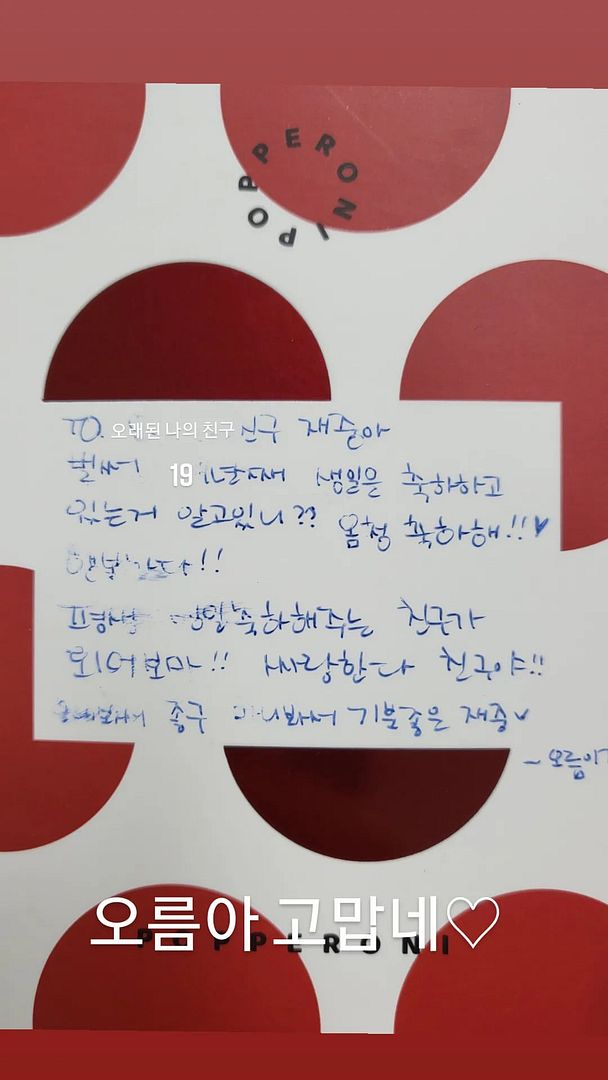 POPPERONI
TO. 오래된 나의 친구 친구 재준아
벌써 19 생일은 축하하고
있는거 알고있니?? 옴청 축하해!!♥
평생 생일축하해주는 친구가
되어보마!! 사랑한다 친구야!!
종구 만나봐서 기분좋은 재중♥
~오름이가
오름아 고맙네♡
POPPERONI